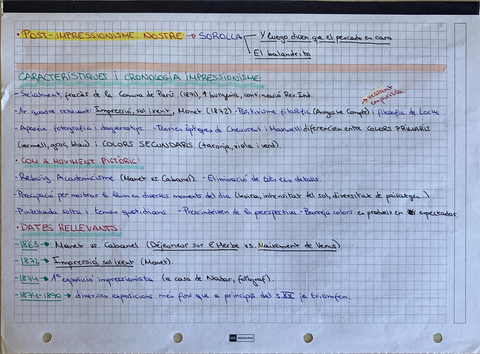 · POST-IMPRESSIONISME NOSTRE → SOROLLA
Y luego dicen que el pescado es caro
El balandrito
CARACTERÍSTIQUES I CRONOLOGIA IMPRESSIONISME:
- Socialment, fracàs de la Comuna de París (1871), ↑ burgesia, continuació Rev. Ind.
→ vessant empirista
- Ar quadre rellevant Impressió, sol ixent, Monet (1872) - Positivisme filosòfic (Auguste Compte) i filosofia de Locke
- Aparició fotografia i daguerrotips. - Teories òptiques de Chevreul i Maxwell: diferencien entre COLORS PRIMARIS
(vermell, groc, blau) i COLORS SECUNDARIS (taronja, viola i verd).
· COM A MOVIMENT PICTÒRIC:
- Rebuig Academicisme (Manet vs. Cabanel). - Eliminació de tots els detalls.
- Preocupació per mostrar la llum en diversos moments del dia (boira, intensitat del sol, diversitat de paisatges...)
- Pinzellada solta i temes quotidians. - Prescindeixen de la perspectiva - Barreja colors: es produeix en espectador.
· DATES RELLEVANTS
- 1863 → Manet vs. Cabanel (Déjeuneur sur l'Herbe vs. Naixement de Venus)
- 1872 → Impressió, sol ixent (Monet).
- 1874 → 1ª exposició impressionista (a casa de Nadar, fotògraf).
- 1874-1890 → diverses exposicions més fins que a principis del s XX ja triomfen.